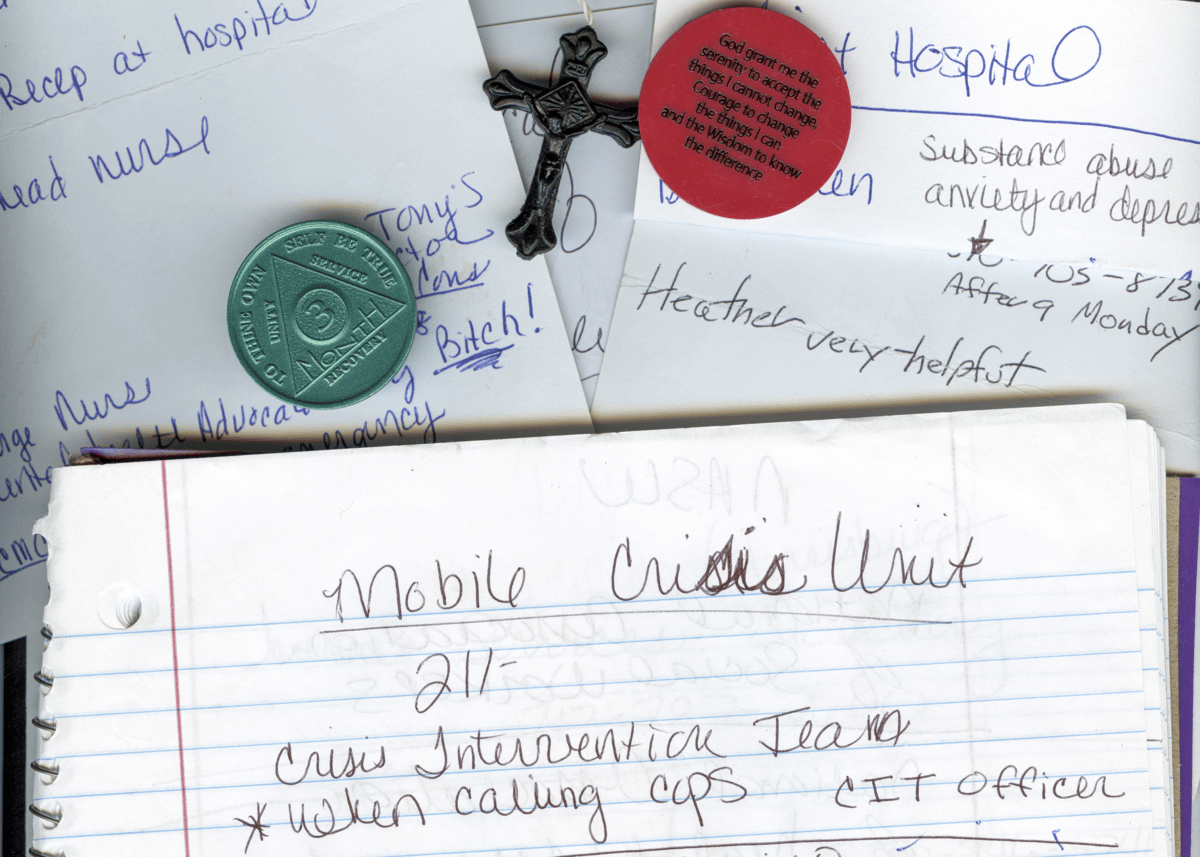 Recep at hospital
head nurse
Tony's
Cons
Bitch!
Nurse
Health Advocat
emergancy
TO THINE OWN SELF BE TRUE
SERVICE
UNITY
RECOVERY
3
MONTH
God grant me the
serenity to accept the
things I cannot change,
Courage to change
the things I can
and the Wisdom to know
the difference
Hospital
Substance abuse
anxiety and depres
After 9 Monday
Heather very helpful
Mobile Crisis Unit
211-
Crisis Intervention Team
* When calling cops CIT Officer